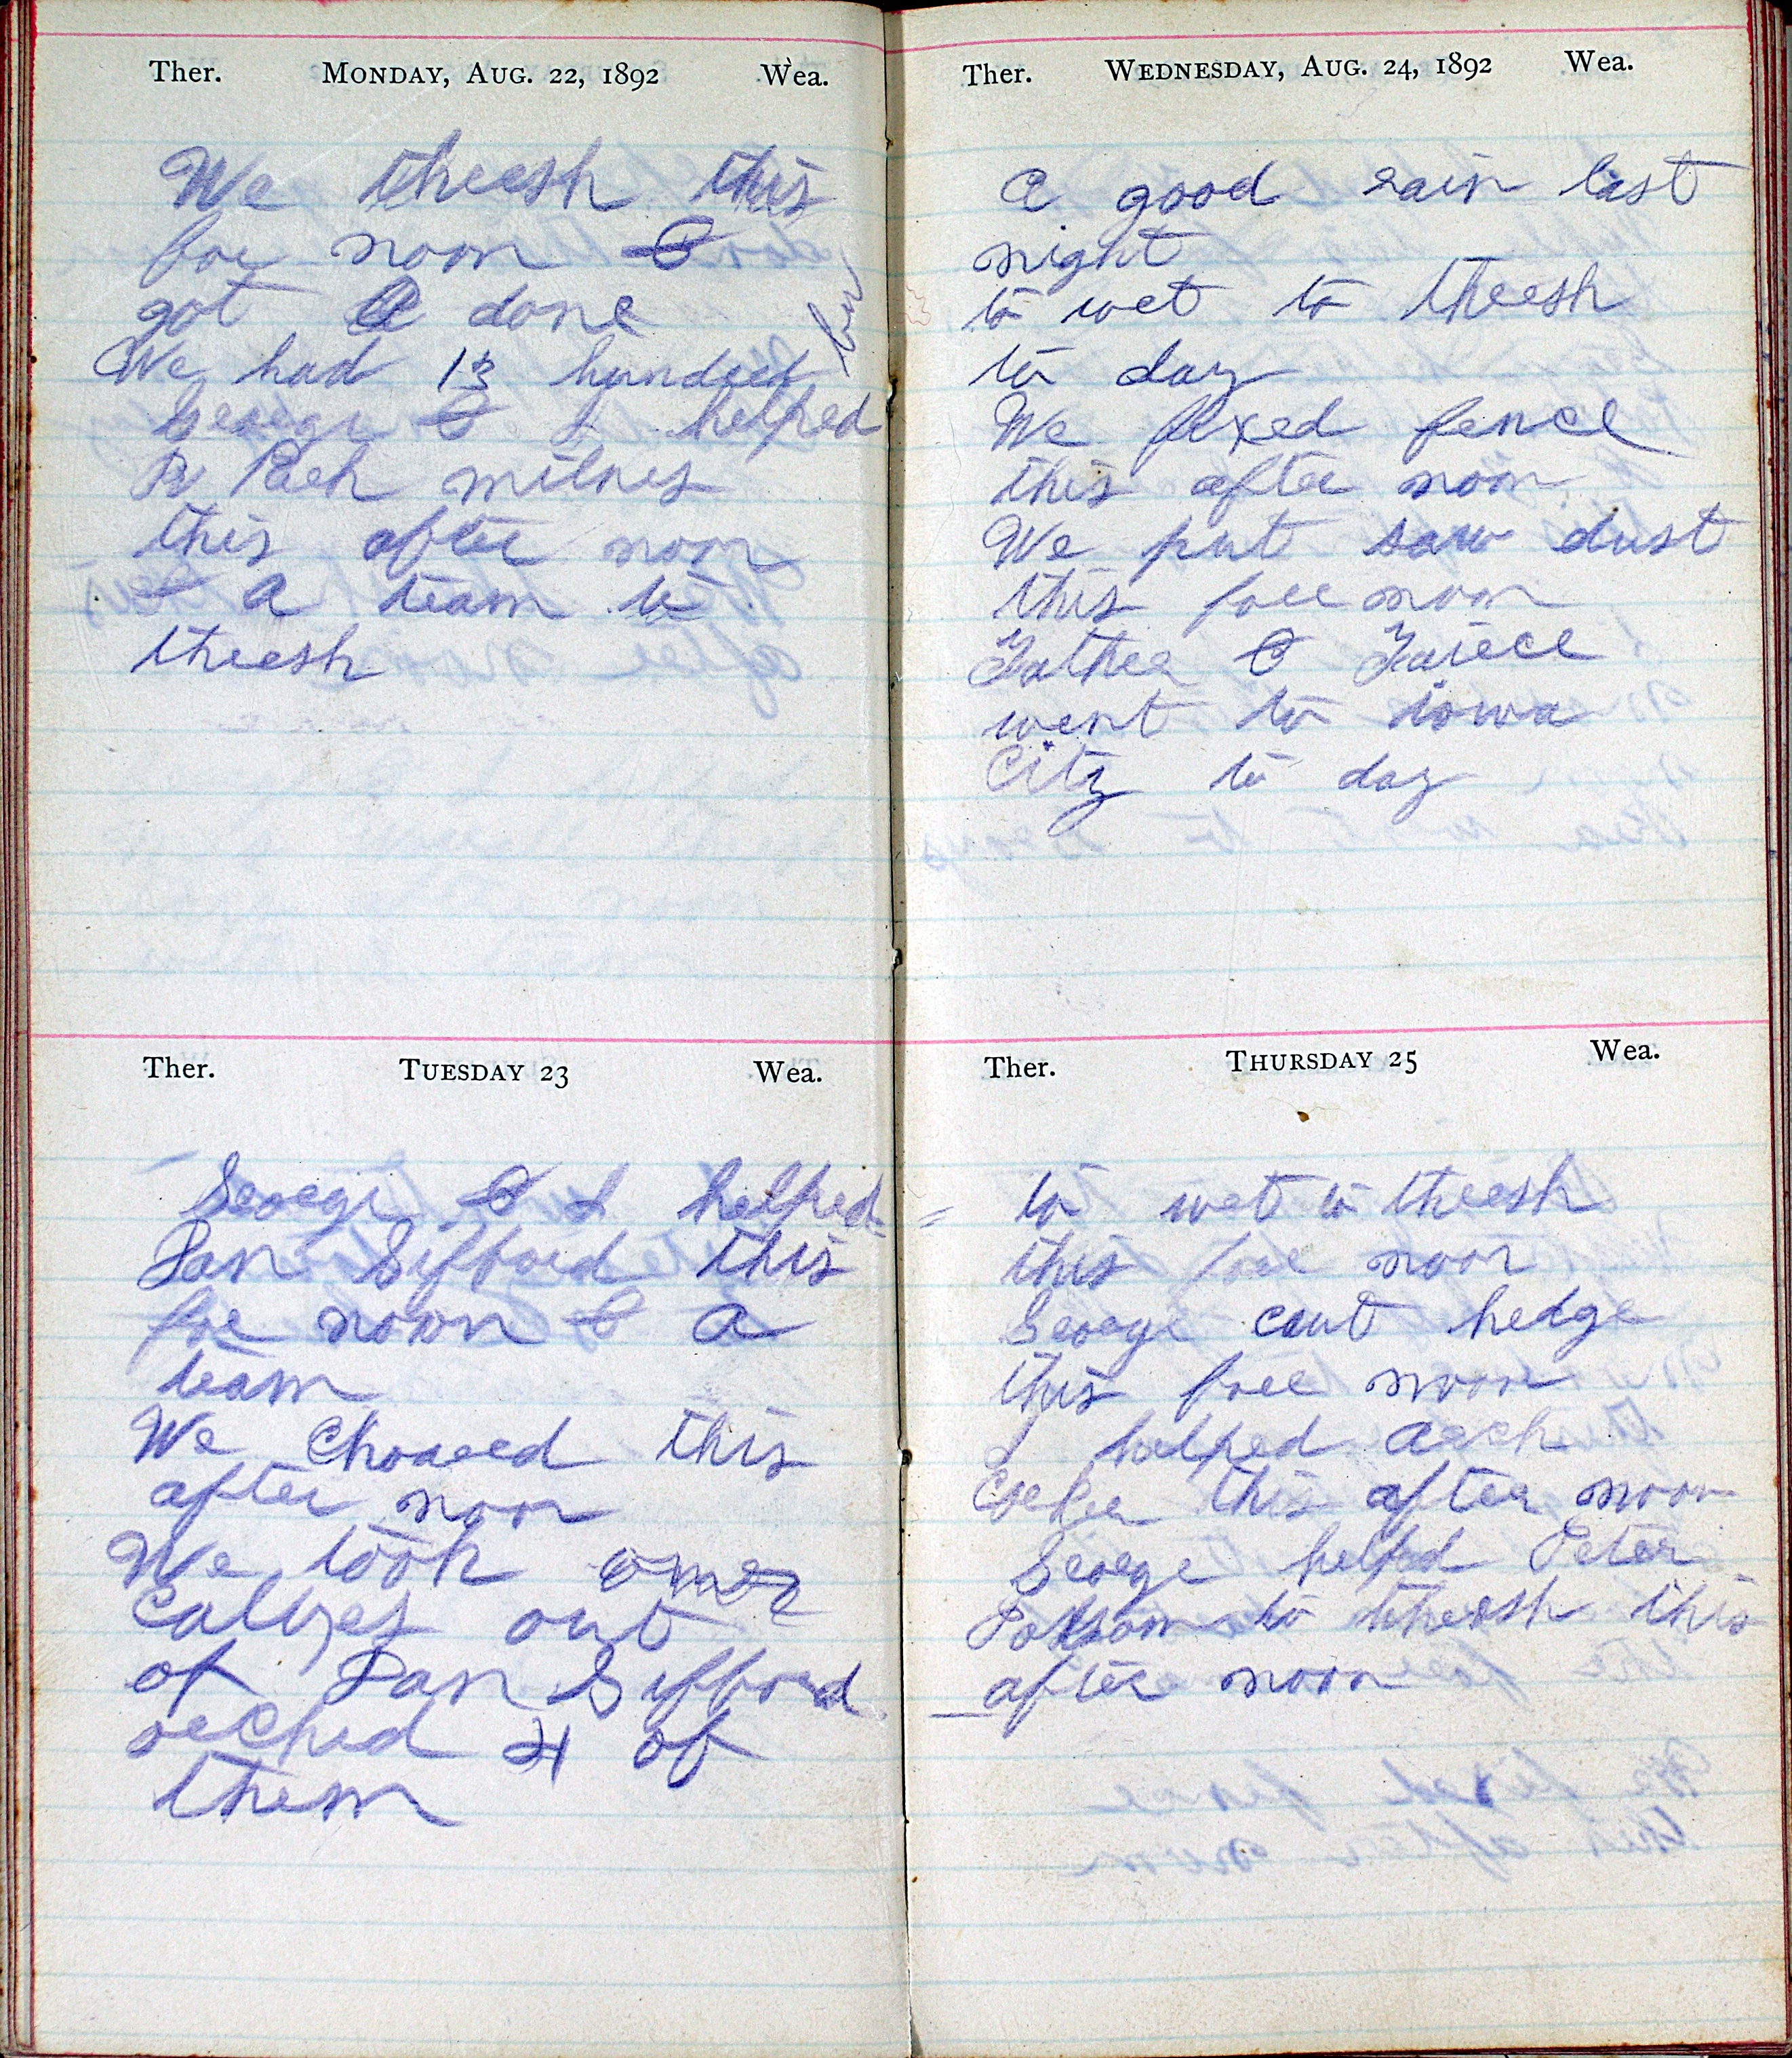 Ther. Monday, Aug. 22, 1892 Wea.
We thresh this
for noon &
got a done
We had 13 hundred bu
George & I helped
milnes
this after noon
& a team to
thresh
Ther. Tuesday 23 Wea.
George & I helped
Dan Sifford this
for noon & a
team
We Chored this
after noon
We took
out
of Dan Sifford
4 of
them
Ther. Wednesday, Aug. 24, 1892 Wea.
A good rain last
night
to wet to thresh
to day
We fixed fence
this after noon
We put saw dust
this fore noon
Father &
went to iowa
City to day
Ther. Thursday 25 Wea.
to wet to thresh
this fore noon
George cut hedge
this fore noon
I helped Arch
this after noon
George helped Peter
to thresh this
after noon